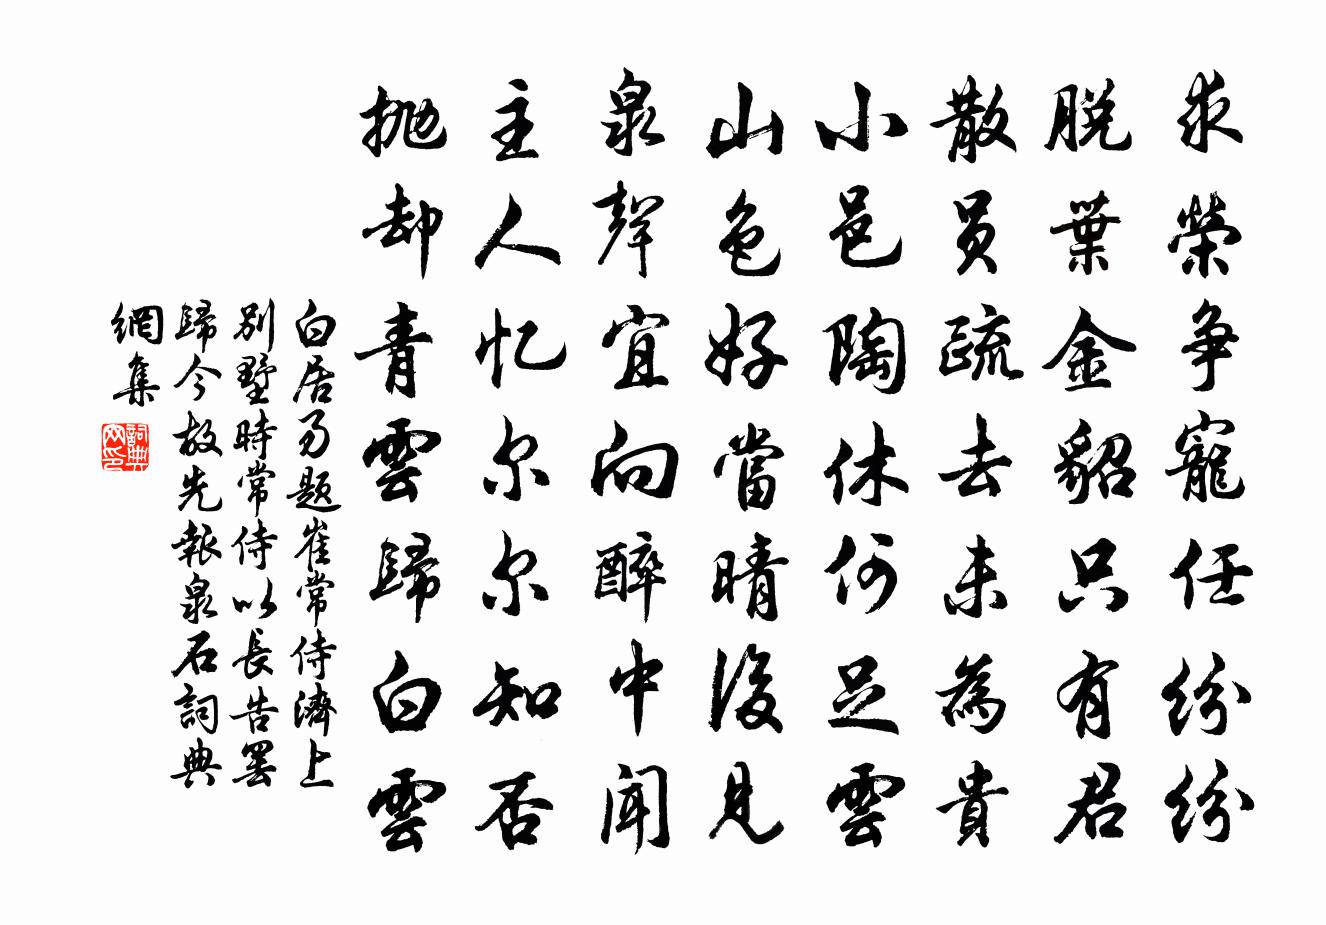 求榮争寵任紛紛
脱葉金貂只有君
散员疏去未為貴
小邑陶休何足雲
山色好當晴後見
泉聲宜向醉中聞
主人忆尔尔知否
抛却青雲歸白雲
白居易題崔常侍濟上
别墅時常侍以長告罷
歸今故先報泉石詞典
網集
詞典網印